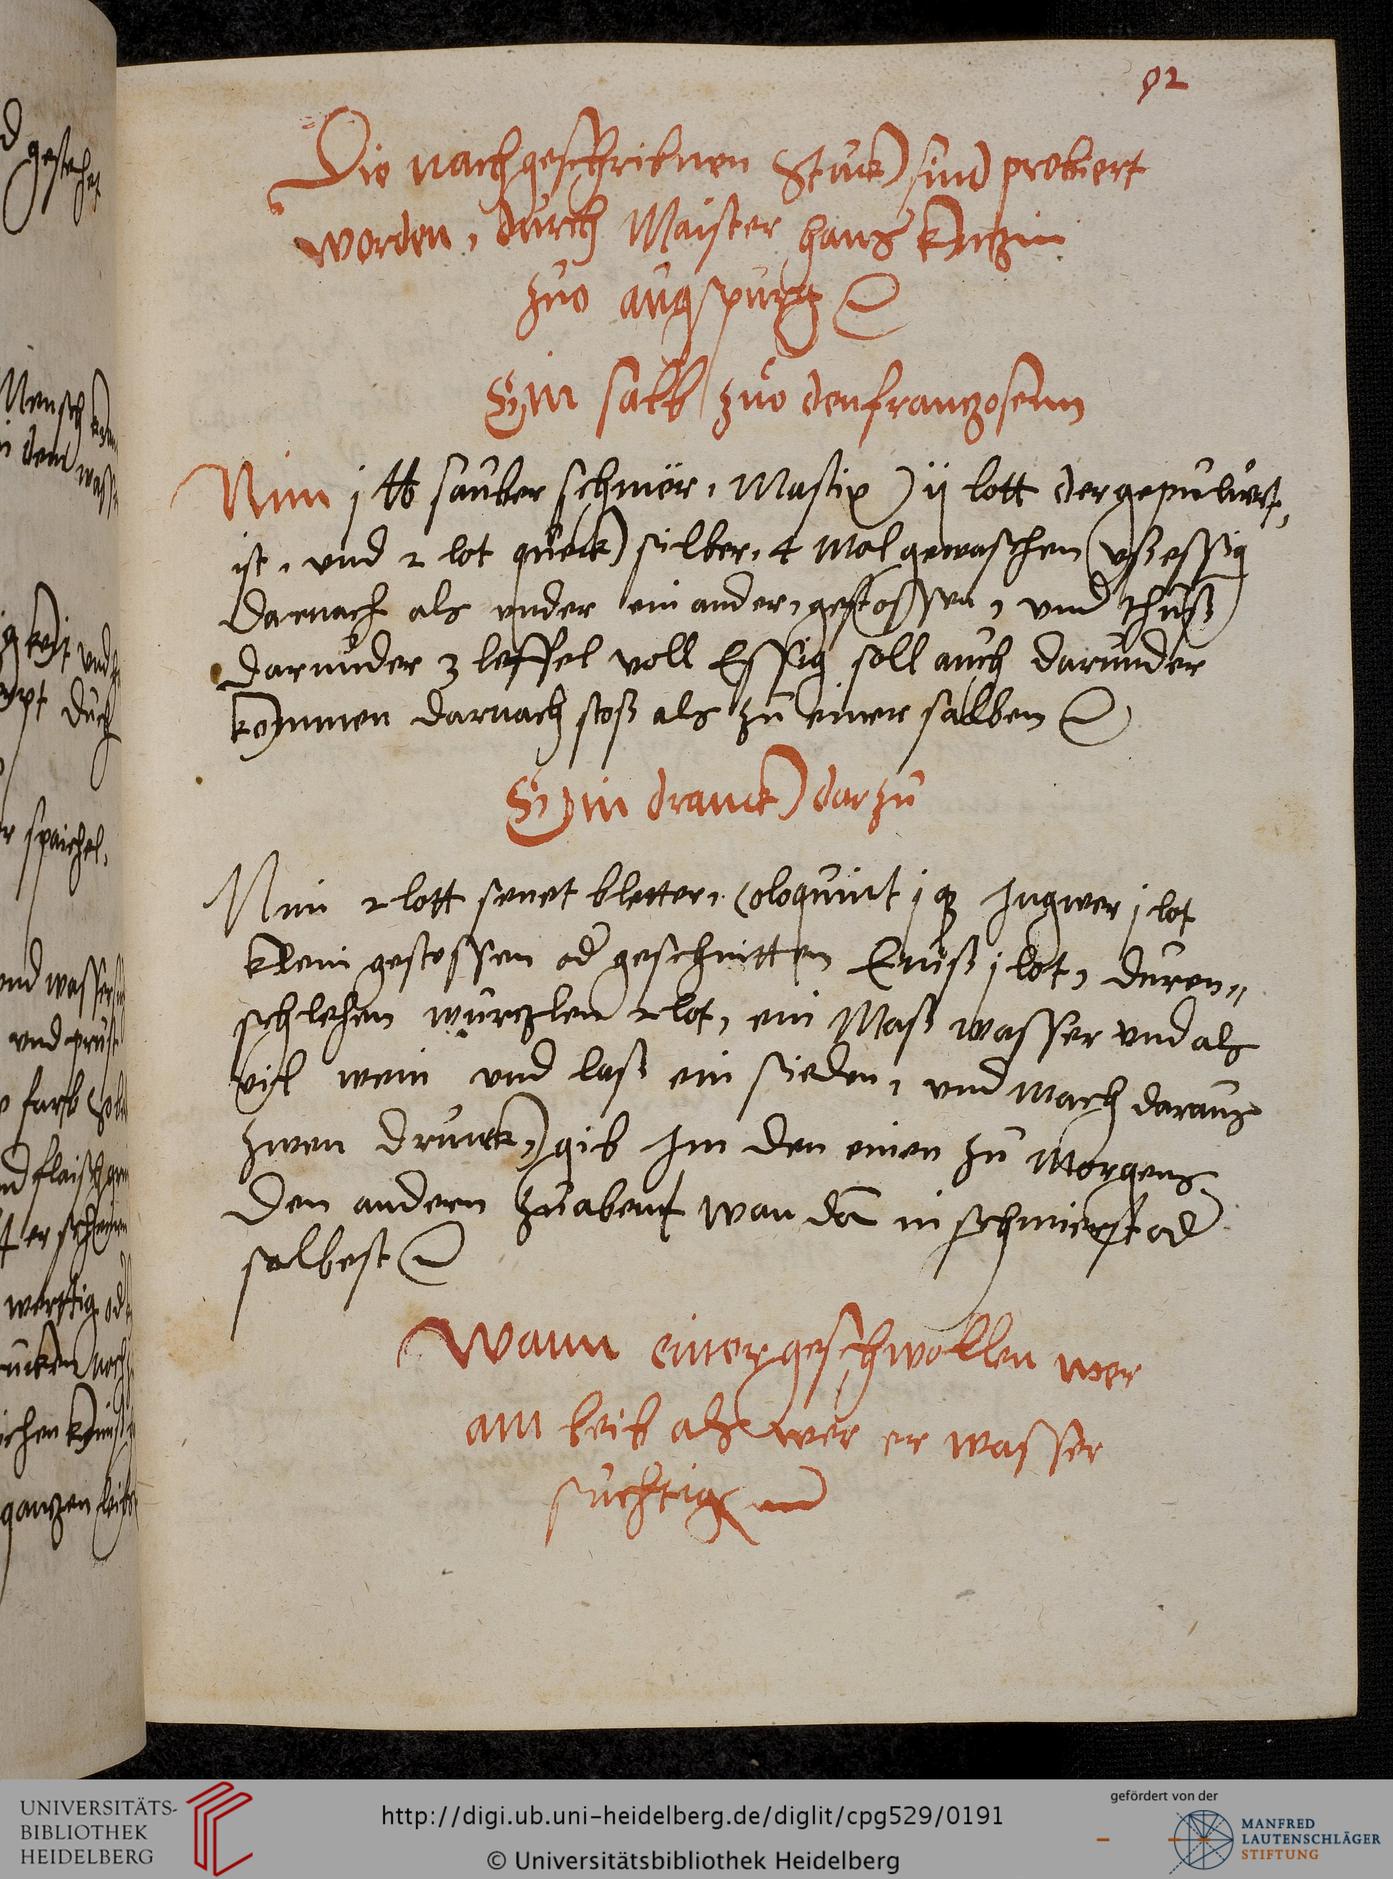 92
Die nachgeschribnen Stuck sind probiert
worden, durch Maister hans
zuo augspurg
Ein salb zuo den franzosenn
Nim j ℔ sauber schmer, Mastix ij lott der gepuluert
ist, vnd 2 lot queck silber, 4 mol gewaschen vß essig
darnach als vnder ein ander, gestossen, vnd thuß
darunder 3 leffel voll Essig soll auch darunder
kommen darnach stoß als zu einer salben
Eyin dranck darzu
Nim 2 lott senet bletter, Coloquint j q Ingwer j lot
klein gestossen od geschnitten j lot, duren„
schlehen wurtzlen 2 lot, ein Maß wasser vnd als
vil wein vnd laß ein sieden, vnd mach daraus
zwen drunck, gib Im den einen zu morgens
den andern zu abent wan du in schmierst od
salbest
Wann einer geschwollen wer
am leib als wer er wasser
suchtig
d
Mensch
in dem
vnd
spaichel.
vnd wasser
vnd
farb
nd flaisch
er
ganzen leib
UNIVERSITÄTS-
BIBLIOTHEK
HEIDELBERG
http://digi.ub.uni-heidelberg.de/diglit/cpg529/0191
© Universitätsbibliothek Heidelberg
gefördert von der
MANFRED
LAUTENSCHLÄGER
STIFTUNG